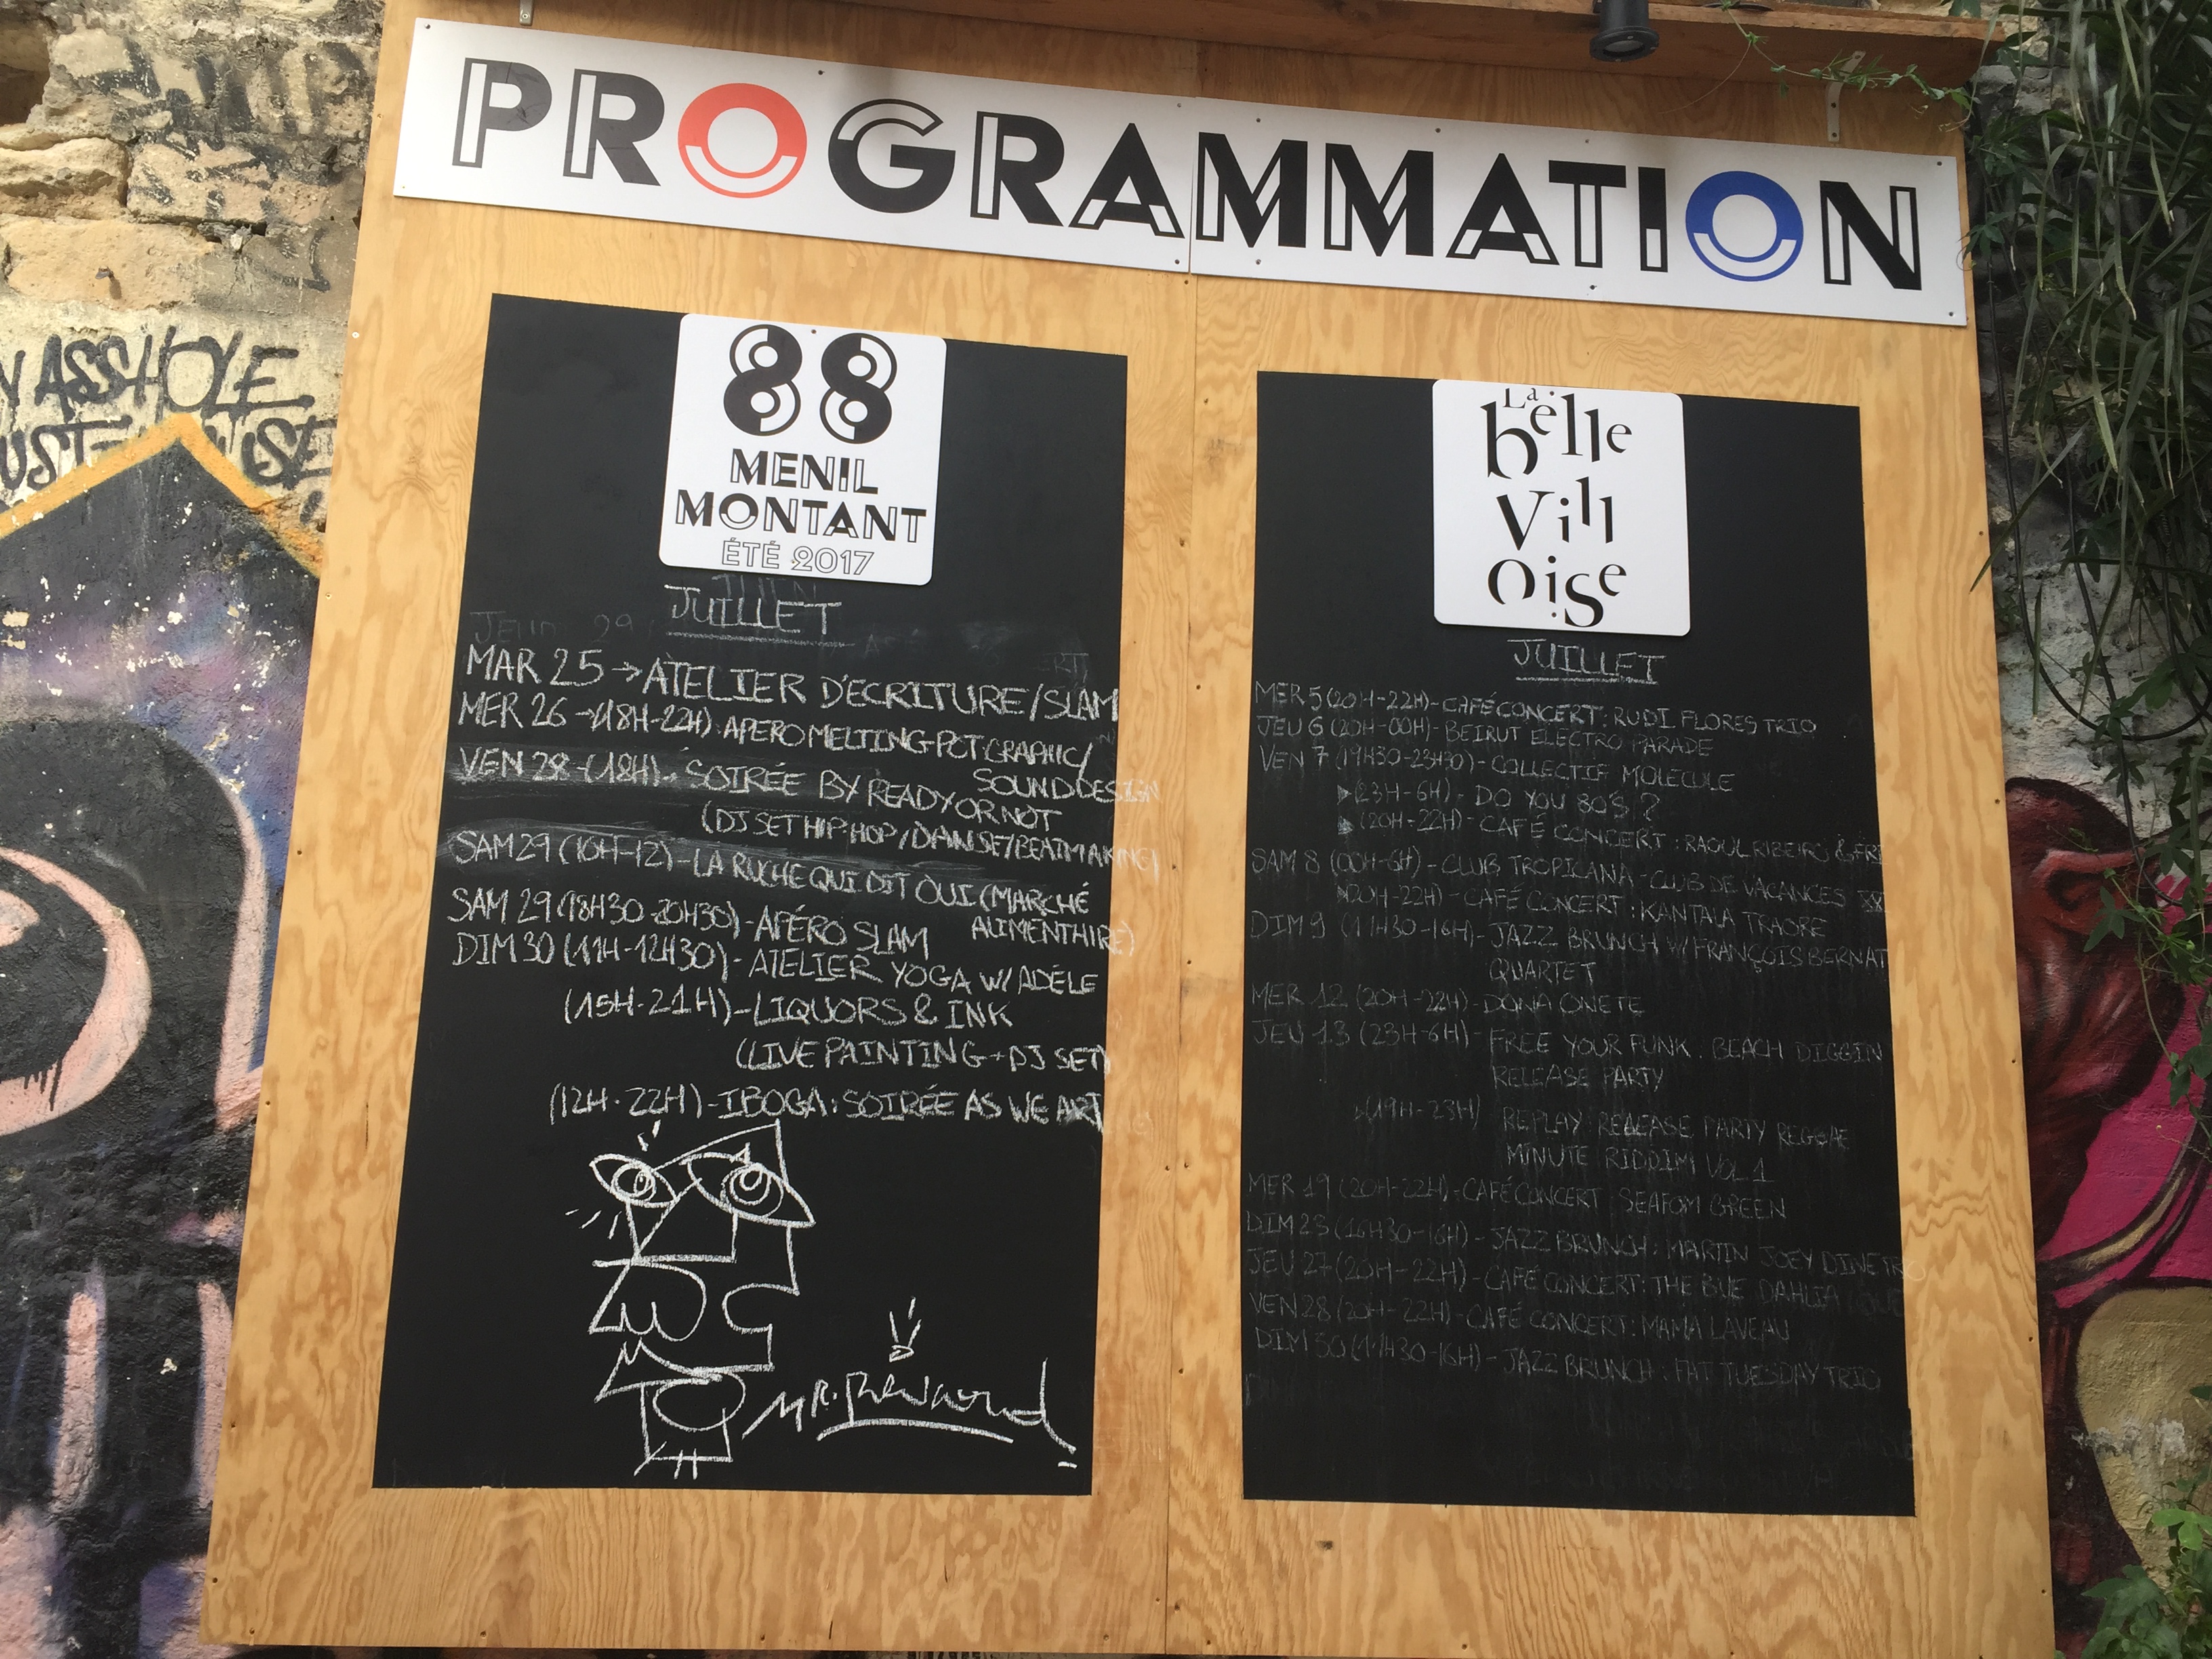 PROGRAMMATION
88
MENIL
MONTANT
ÉTÉ 2017
JUILLET
MAR 25 → ATELIER D'ECRITURE/SLAM
MER 26 → (18H-22H): APERO MELTING-POT GRAPHIC/
SOUND DESIGN
VEN 28 - (18H). SOIRÉE BY READY OR NOT
(DJ SET HIP HOP/DANSE/BEATMAKING)
SAM 29 (10H-12) - LA RUCHE QUI DIT OUI (MARCHÉ
ALIMENTHIRE)
SAM 29 (18H30-20H30) - APÉRO SLAM
DIM 30 (11H-12H30) - ATELIER YOGA W/ ADÈLE
(15H-21H) - LIQUORS & INK
(LIVE PAINTING + DJ SET)
(12H-22H) - IBOGA: SOIRÉE AS WE ART
La
belle
Vill
oise
JUILLET
MER 5 (20H-22H) - CAFÉ CONCERT: RUDI FLORES TRIO
JEU 6 (20H-00H) - BEIRUT ELECTRO PARADE
VEN 7 (19H30-23H30) - COLLECTIF MOLECULE
(23H-6H) - DO YOU 80'S ?
(20H-22H) - CAFÉ CONCERT: RAOUL RIBEIRO & FRI
SAM 8 (00H-6H) - CLUB TROPICANA - CLUB DE VACANCES
(20H-22H) - CAFÉ CONCERT: KANTALA TRAORE
DIM 9 (11H30-16H) - JAZZ BRUNCH W/ FRANÇOIS BERNAT
QUARTET
MER 12 (20H-22H) - DONA ONETE
JEU 13 (23H-6H) - FREE YOUR FUNK. BEACH DIGGIN
RELEASE PARTY
(19H-23H) REPLAY: RELEASE PARTY REGGAE
MINUTE RIDDIM VOL 1
MER 19 (20H-22H) - CAFÉ CONCERT: SEAFOM GREEN
DIM 23 (16H30-16H) - JAZZ BRUNCH: MARTIN JOEY DINE TRIO
JEU 27 (20H-22H) - CAFÉ CONCERT: THE BUE DAHLIA
VEN 28 (20H-22H) - CAFÉ CONCERT: MAMA LAVEAU
DIM 30 (11H30-16H) - JAZZ BRUNCH: FAT TUESDAY TRIO
ASSHOLE